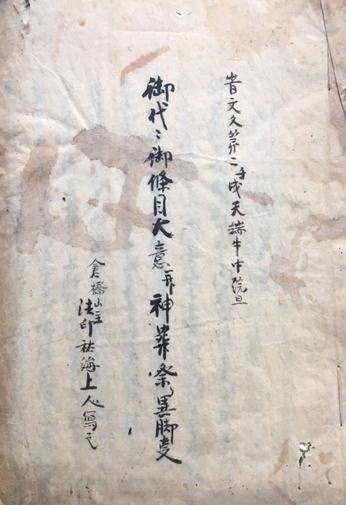 旹文久第二壬戌天端午中院旦
御代々御條目大意并神葬祭異脚夋
倉橋山主
法印祐海上人写之